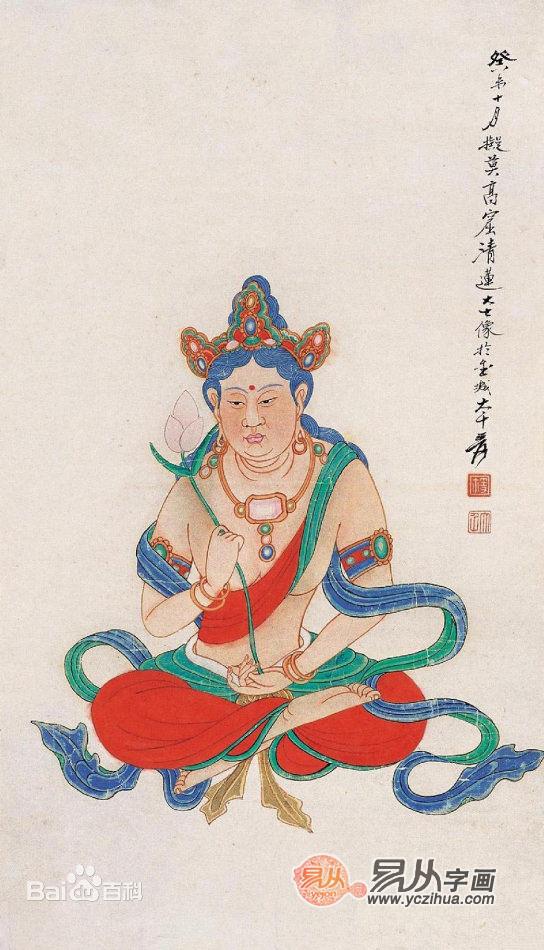 癸未十月擬莫高窟清蓮大士像於金城大千爰
Bai百科
易从
yicon
易从字画
www.yczihua.com